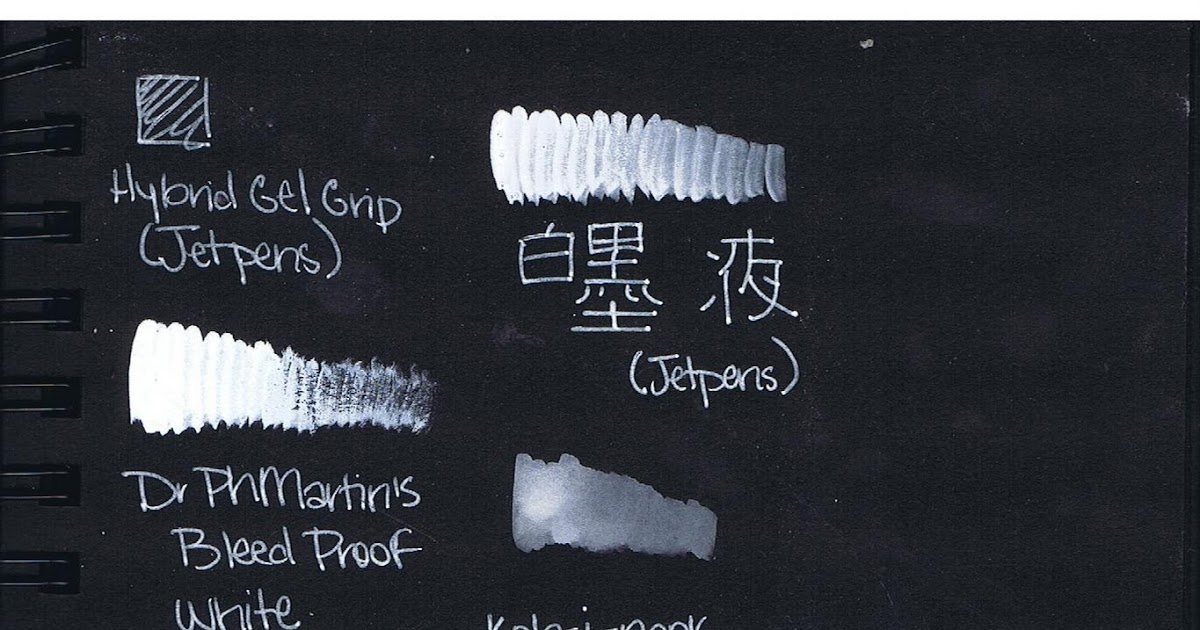 Hybrid Gel Grip
(Jetpens)
白墨 液
(Jetpens)
Dr Ph Martin's
Bleed Proof
White
Koh-i-noor